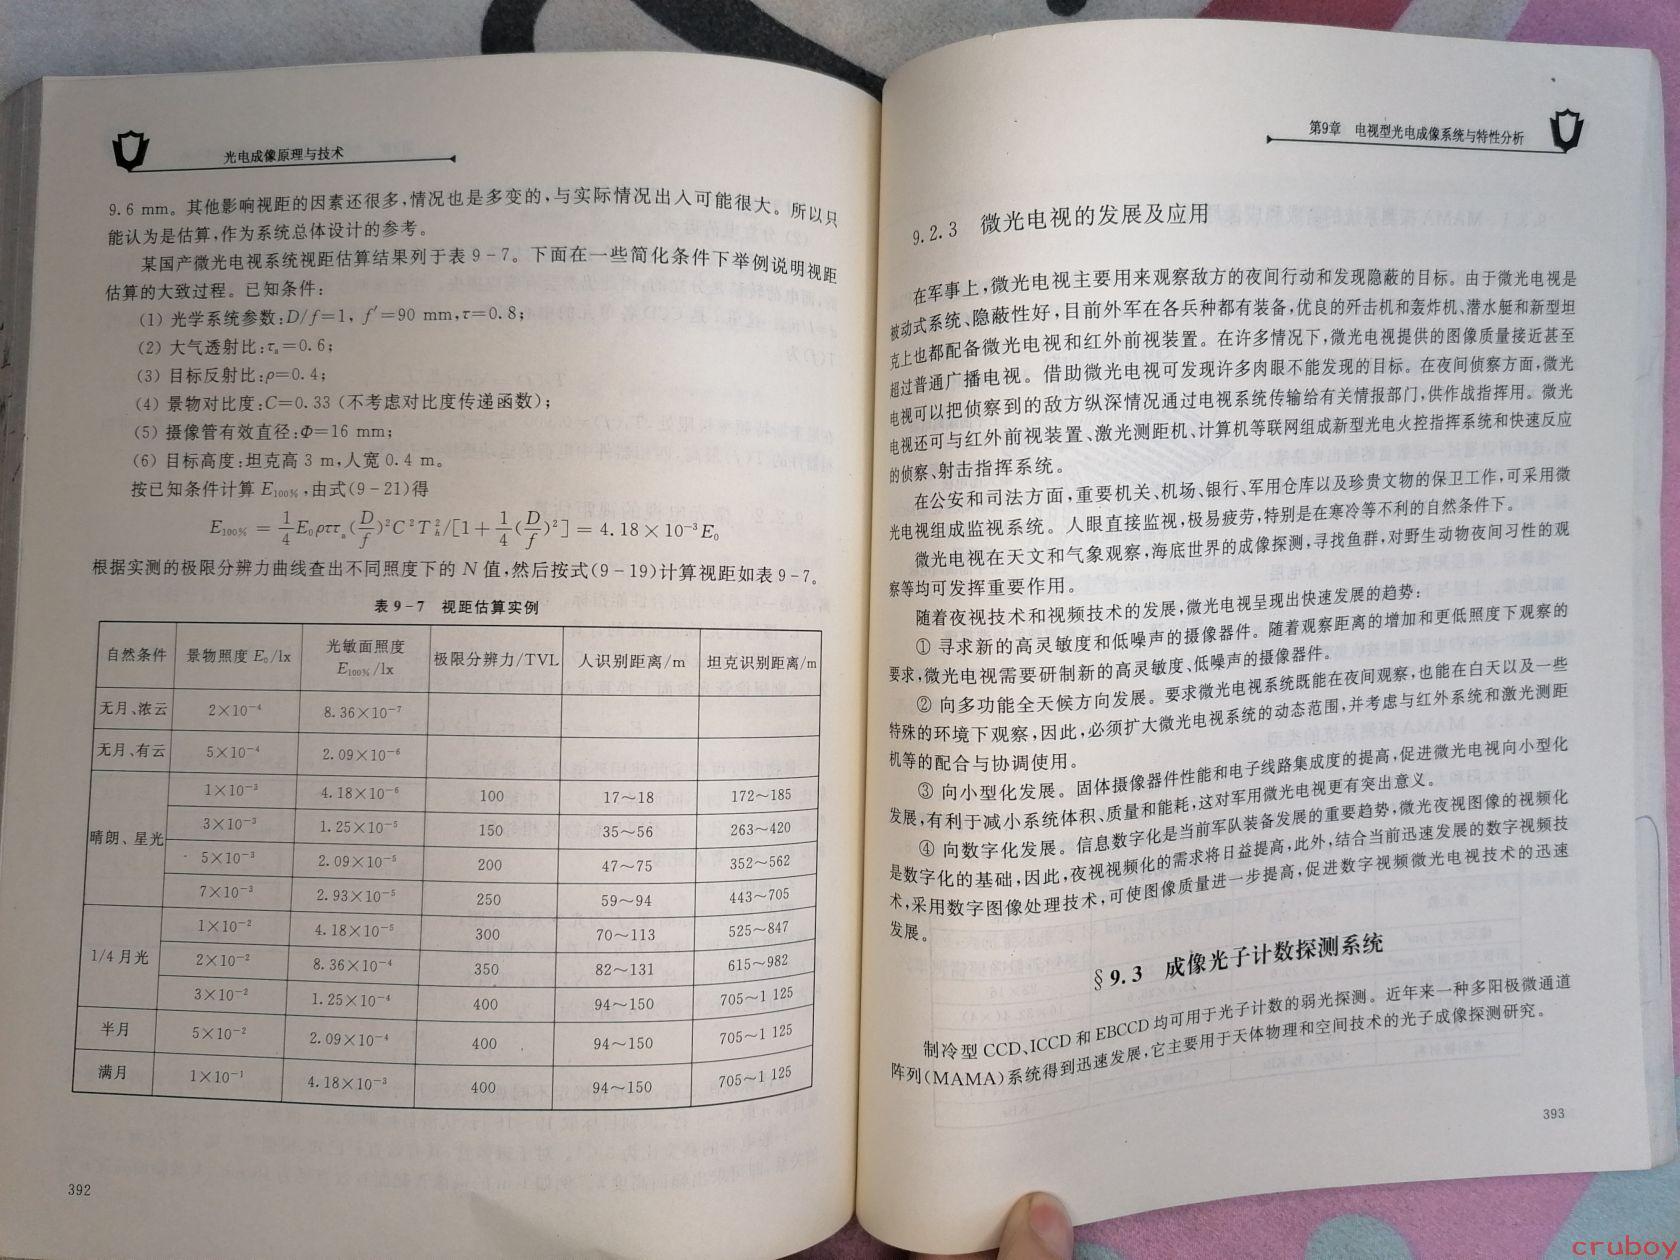 光电成像原理与技术
9.6 mm。其他影响视距的因素还很多,情况也是多变的,与实际情况出入可能很大。所以只
能认为是估算,作为系统总体设计的参考。
某国产微光电视系统视距估算结果列于表 9-7。下面在一些简化条件下举例说明视距
估算的大致过程。已知条件:
(1) 光学系统参数:D/f=1, f′=90 mm,τ=0.8;
(2) 大气透射比:τₐ=0.6;
(3) 目标反射比:ρ=0.4;
(4) 景物对比度:C=0.33 (不考虑对比度传递函数);
(5) 摄像管有效直径:Φ=16 mm;
(6) 目标高度:坦克高 3 m,人宽 0.4 m。
按已知条件计算 E100%,由式(9-21)得
E100% = 1/4 E₀ρττₐ(D/f)²C²Tₕ²/[1+1/4(D/f)²] = 4.18×10⁻³E₀
根据实测的极限分辨力曲线查出不同照度下的 N 值,然后按式(9-19)计算视距如表 9-7。
表 9-7 视距估算实例
自然条件 景物照度 E₀/lx 光敏面照度 E100%/lx 极限分辨力/TVL 人识别距离/m 坦克识别距离/m
无月、浓云 2×10⁻⁴ 8.36×10⁻⁷
无月、有云 5×10⁻⁴ 2.09×10⁻⁶
晴朗、星光 1×10⁻³ 4.18×10⁻⁶ 100 17～18 172～185
3×10⁻³ 1.25×10⁻⁵ 150 35～56 263～420
5×10⁻³ 2.09×10⁻⁵ 200 47～75 352～562
7×10⁻³ 2.93×10⁻⁵ 250 59～94 443～705
1/4 月光 1×10⁻² 4.18×10⁻⁵ 300 70～113 525～847
2×10⁻² 8.36×10⁻⁴ 350 82～131 615～982
3×10⁻² 1.25×10⁻⁴ 400 94～150 705～1 125
半月 5×10⁻² 2.09×10⁻⁴ 400 94～150 705～1 125
满月 1×10⁻¹ 4.18×10⁻³ 400 94～150 705～1 125
392
第9章 电视型光电成像系统与特性分析
9.2.3 微光电视的发展及应用
在军事上,微光电视主要用来观察敌方的夜间行动和发现隐蔽的目标。由于微光电视是
被动式系统、隐蔽性好,目前外军在各兵种都有装备,优良的歼击机和轰炸机、潜水艇和新型坦
克上也都配备微光电视和红外前视装置。在许多情况下,微光电视提供的图像质量接近甚至
超过普通广播电视。借助微光电视可发现许多肉眼不能发现的目标。在夜间侦察方面,微光
电视可以把侦察到的敌方纵深情况通过电视系统传输给有关情报部门,供作战指挥用。微光
电视还可与红外前视装置、激光测距机、计算机等联网组成新型光电火控指挥系统和快速反应
的侦察、射击指挥系统。
在公安和司法方面,重要机关、机场、银行、军用仓库以及珍贵文物的保卫工作,可采用微
光电视组成监视系统。人眼直接监视,极易疲劳,特别是在寒冷等不利的自然条件下。
微光电视在天文和气象观察,海底世界的成像探测,寻找鱼群,对野生动物夜间习性的观
察等均可发挥重要作用。
随着夜视技术和视频技术的发展,微光电视呈现出快速发展的趋势:
① 寻求新的高灵敏度和低噪声的摄像器件。随着观察距离的增加和更低照度下观察的
要求,微光电视需要研制新的高灵敏度、低噪声的摄像器件。
② 向多功能全天候方向发展。要求微光电视系统既能在夜间观察,也能在白天以及一些
特殊的环境下观察,因此,必须扩大微光电视系统的动态范围,并考虑与红外系统和激光测距
机等的配合与协调使用。
③ 向小型化发展。固体摄像器件性能和电子线路集成度的提高,促进微光电视向小型化
发展,有利于减小系统体积、质量和能耗,这对军用微光电视更有突出意义。
④ 向数字化发展。信息数字化是当前军队装备发展的重要趋势,微光夜视图像的视频化
是数字化的基础,因此,夜视视频化的需求将日益提高,此外,结合当前迅速发展的数字视频技
术,采用数字图像处理技术,可使图像质量进一步提高,促进数字视频微光电视技术的迅速
发展。
§9.3 成像光子计数探测系统
制冷型 CCD、ICCD 和 EBCCD 均可用于光子计数的弱光探测。近年来一种多阳极微通道
阵列(MAMA)系统得到迅速发展,它主要用于天体物理和空间技术的光子成像探测研究。
393
cruboy